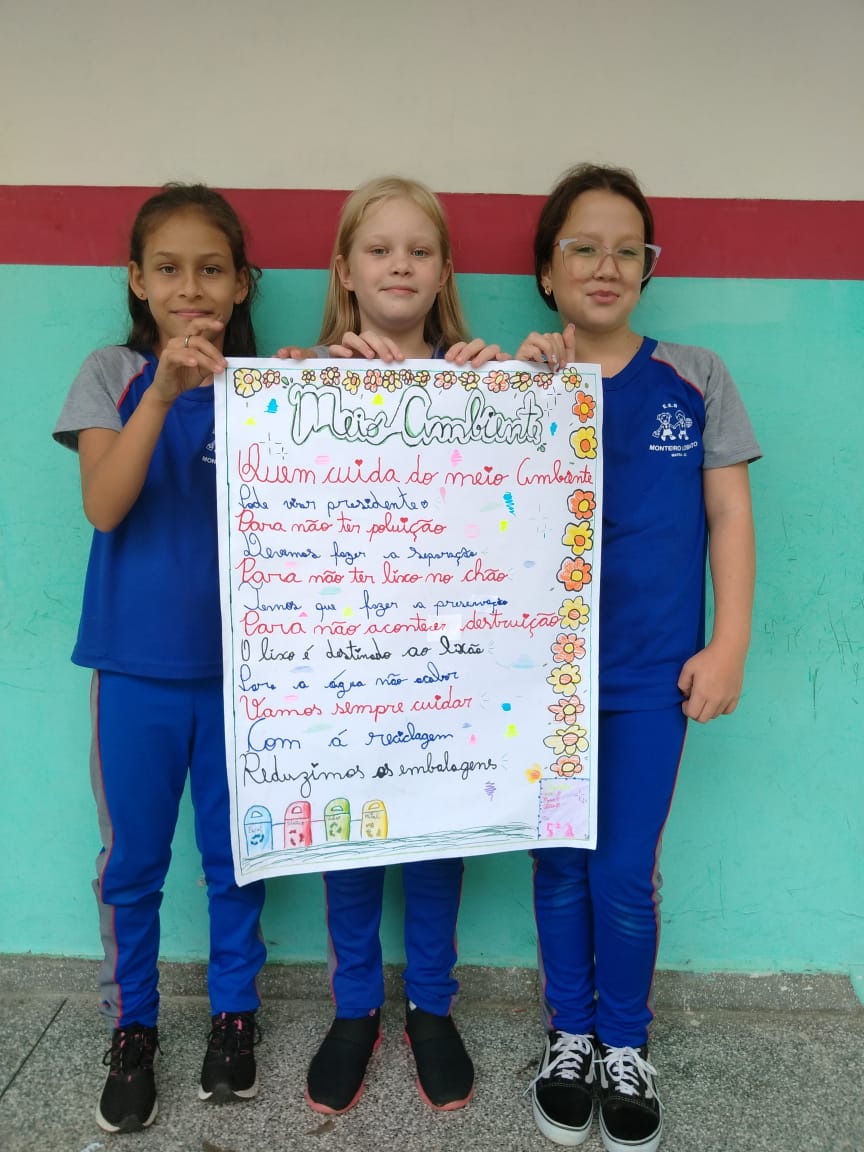 Meio Ambiente
Quem cuida do meio Ambiente
Pode virar presidente
Para não ter poluição
Devemos fazer a separação
Para não ter lixo no chão
Temos que fazer a preservação
Para não acontecer destruição
O lixo é destinado ao lixão
Para a água não acabar
Vamos sempre cuidar
Com á reciclagem
Reduzimos as embalagens
Papel
Metal
5º2
MONTEIRO LOBATO